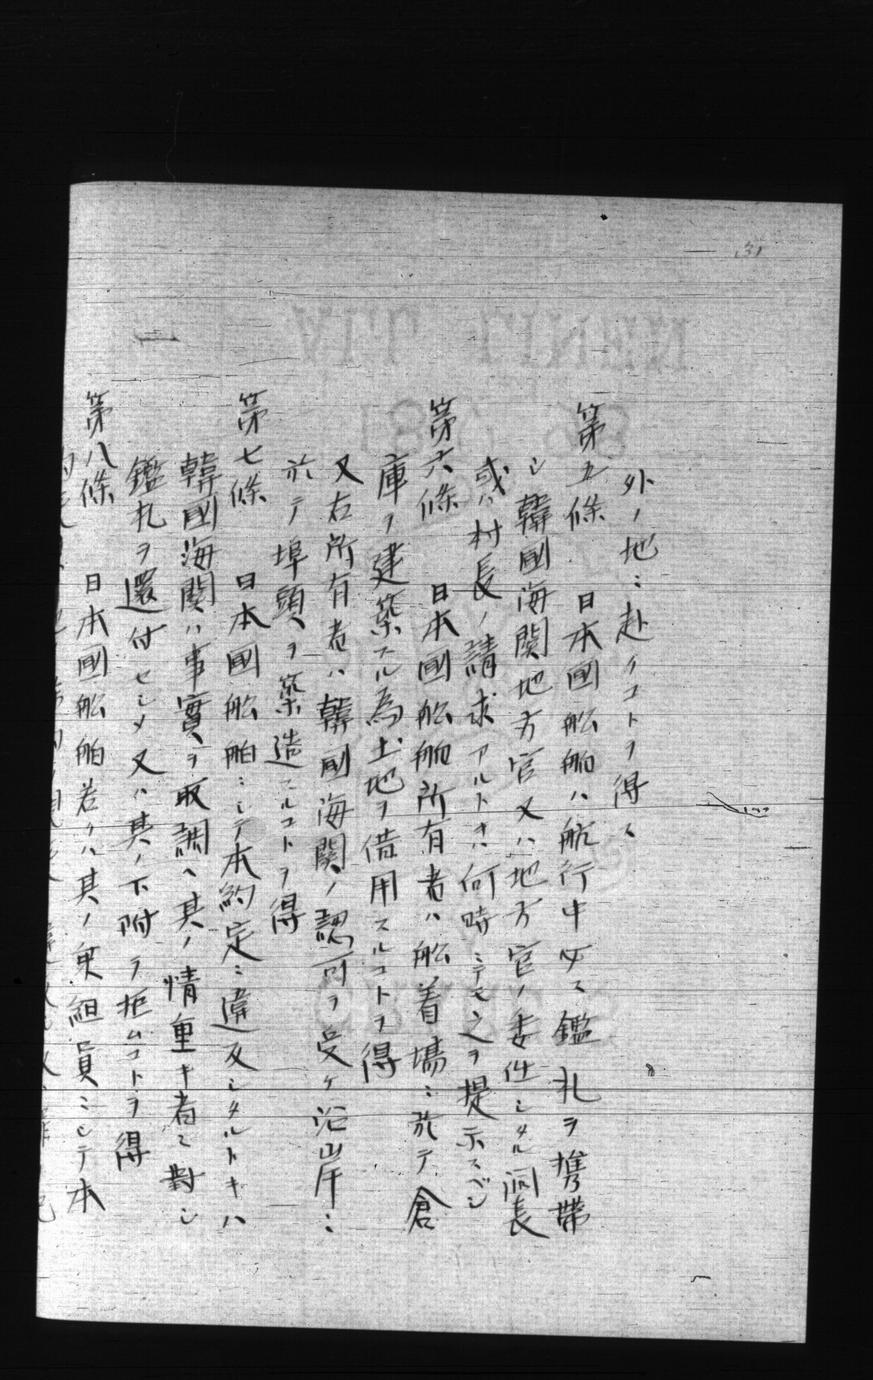 31
外ノ地ニ赴クコトヲ得ス
第五條 日本國船舶ハ航行中必ス鑑札ヲ携帶
シ韓國海關地方官又ハ地方官ノ委任シタル洞長
或ハ村長ノ請求アルトキハ何時ニテモ之ヲ提示スベシ
第六條 日本國船舶所有者ハ船着場ニ於テ倉
庫ヲ建築スル為土地ヲ借用スルコトヲ得
又右所有者ハ韓國海關ノ認可ヲ受ケ沿岸ニ
於テ埠頭ヲ築造スルコトヲ得
第七條 日本國船舶ニシテ本約定ニ違反シタルトキハ
韓國海關ハ事實ヲ取調ヘ其ノ情重キ者ニ對シ
鑑札ヲ還付セシメ又ハ其ノ下附ヲ拒ムコトヲ得
第八條 日本國船舶若クハ其ノ乗組員ニシテ本